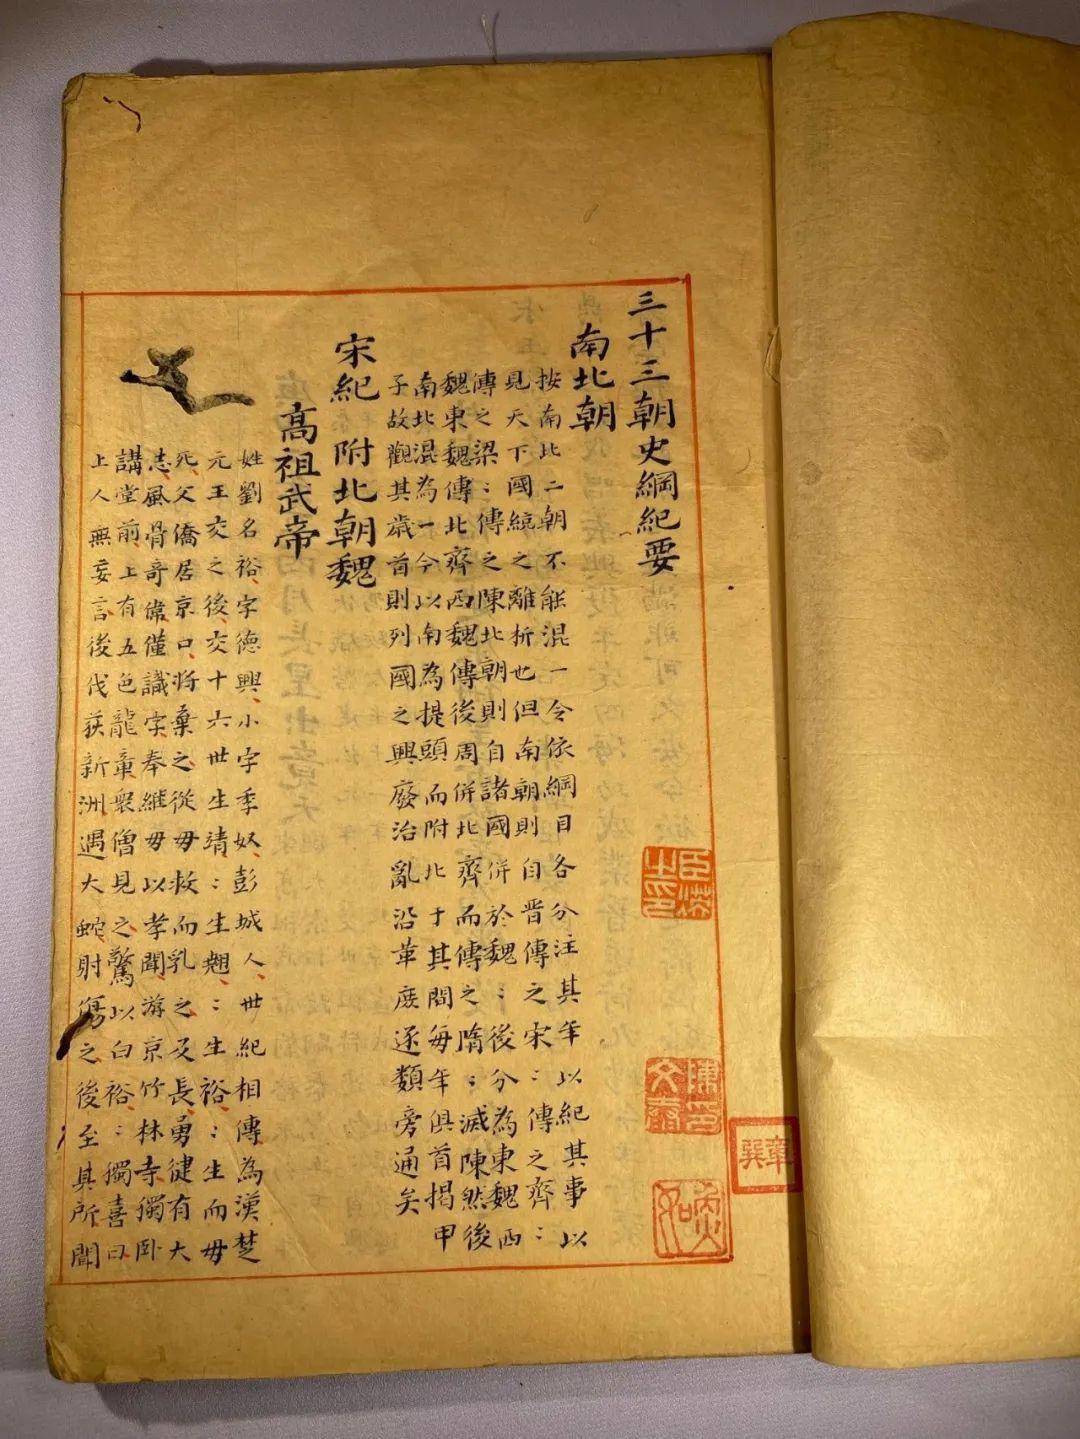 三十三朝史綱紀要
南北朝
按南北二朝不能混一今依綱目各分注其年以紀其事以
見天下國統之離析也但南朝則自晋傳之宋：傳之齊：
傳之梁：傳之陳北朝則自諸國併於魏：後分為東魏西
魏東魏傳北齊西魏傳後周併北齊而傳之隋：滅陳然後
南北混為一今以南為提頭而附北于其間每年俱首揭甲
子故觀其歲首則列國之興廢治亂沿革庶逐類旁通矣
宋紀 附北朝魏
高祖武帝
姓劉名裕字德興小字季奴彭城人世紀相傳為漢楚
元王交之後交十六世生靖：生翹：生裕：生而母
死父僑居京口將棄之從母救而乳之及長勇健有大
志風骨奇偉僅識字奉繼母以孝聞游京竹林寺獨卧
講堂前上有五色龍章衆僧見之驚以白裕：獨喜曰
上人無妄言後伐荻新洲遇大蛇射傷之後至其所聞
之印
陳印
文
章